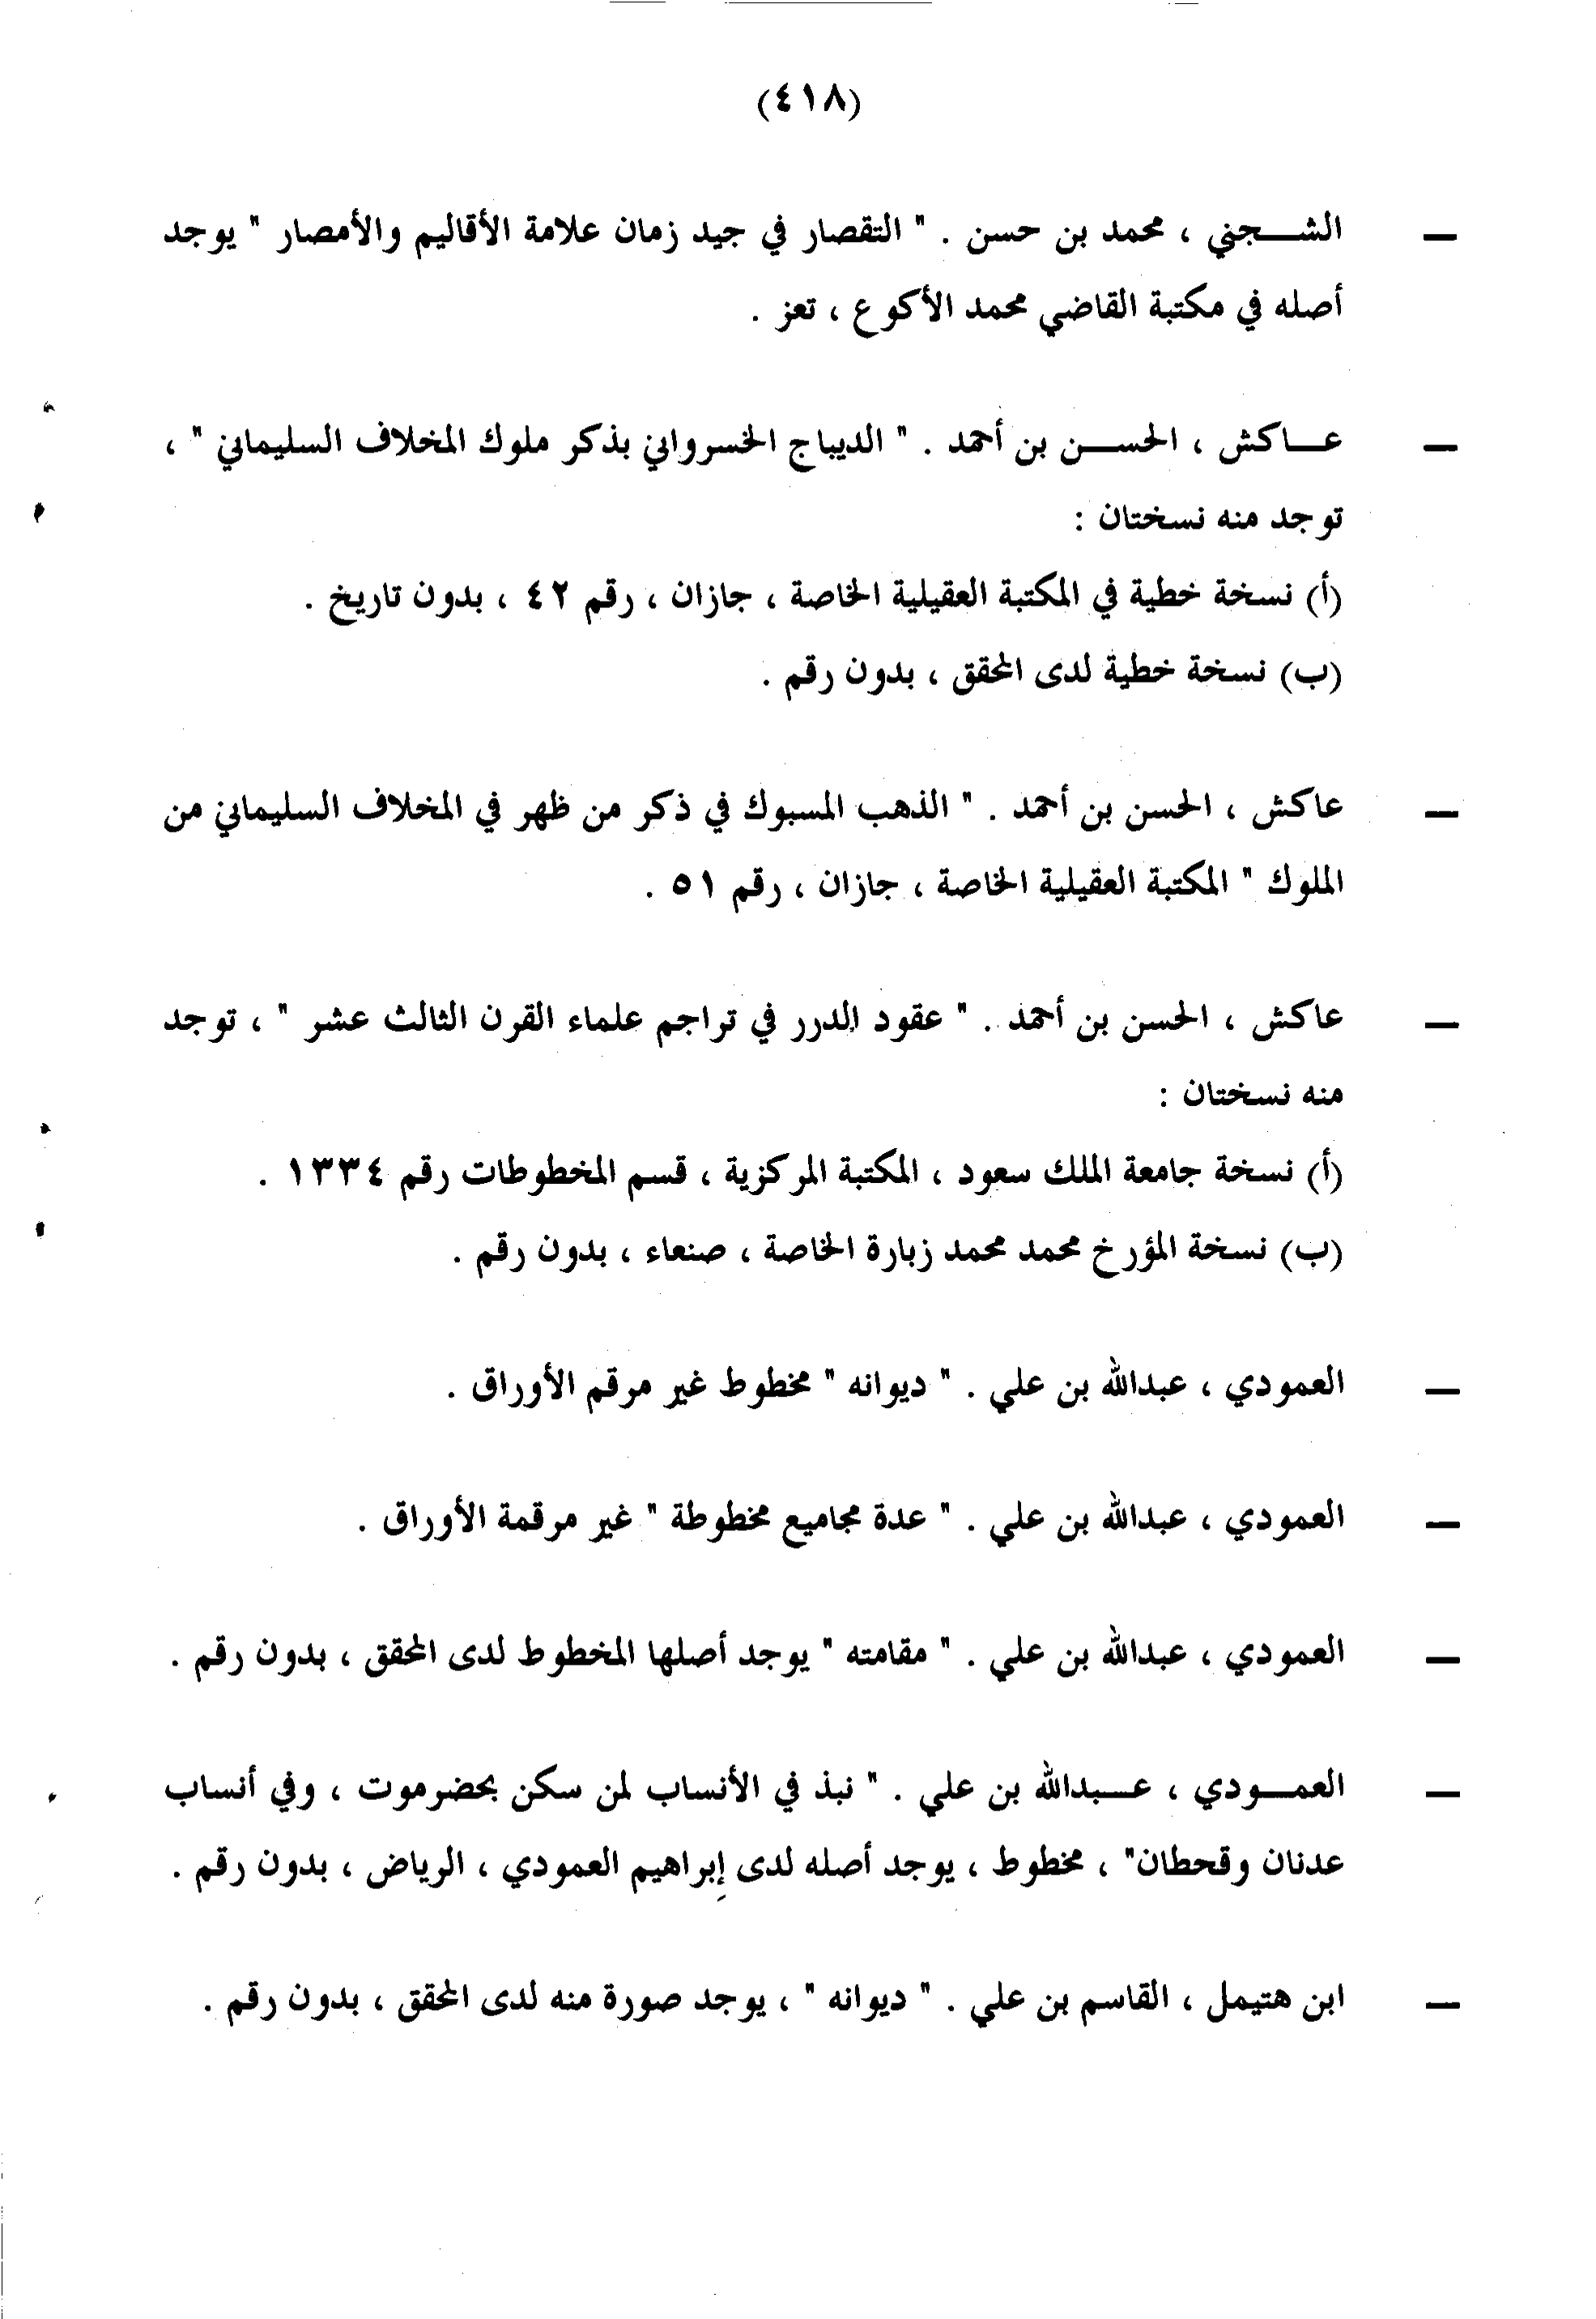 (٤١٨)
— الشجني ، محمد بن حسن . " التقصار في جيد زمان علامة الأقاليم والأمصار " يوجد
أصله في مكتبة القاضي محمد الأكوع ، تعز .
— عاكش ، الحسن بن أحمد . " الديباج الخسرواني بذكر ملوك المخلاف السليماني " ،
توجد منه نسختان :
(أ) نسخة خطية في المكتبة العقيلية الخاصة ، جازان ، رقم ٤٢ ، بدون تاريخ .
(ب) نسخة خطية لدى المحقق ، بدون رقم .
— عاكش ، الحسن بن أحمد . " الذهب المسبوك في ذكر من ظهر في المخلاف السليماني من
الملوك " المكتبة العقيلية الخاصة ، جازان ، رقم ٥١ .
— عاكش ، الحسن بن أحمد . " عقود الدرر في تراجم علماء القرن الثالث عشر " ، توجد
منه نسختان :
(أ) نسخة جامعة الملك سعود ، المكتبة المركزية ، قسم المخطوطات رقم ١٣٣٤ .
(ب) نسخة المؤرخ محمد محمد زبارة الخاصة ، صنعاء ، بدون رقم .
— العمودي ، عبدالله بن علي . " ديوانه " مخطوط غير مرقم الأوراق .
— العمودي ، عبدالله بن علي . " عدة مجاميع مخطوطة " غير مرقمة الأوراق .
— العمودي ، عبدالله بن علي . " مقامته " يوجد أصلها المخطوط لدى المحقق ، بدون رقم .
— العمودي ، عبدالله بن علي . " نبذ في الأنساب لمن سكن بحضرموت ، وفي أنساب
عدنان وقحطان" ، مخطوط ، يوجد أصله لدى إبراهيم العمودي ، الرياض ، بدون رقم .
— ابن هتيمل ، القاسم بن علي . " ديوانه " ، يوجد صورة منه لدى المحقق ، بدون رقم .